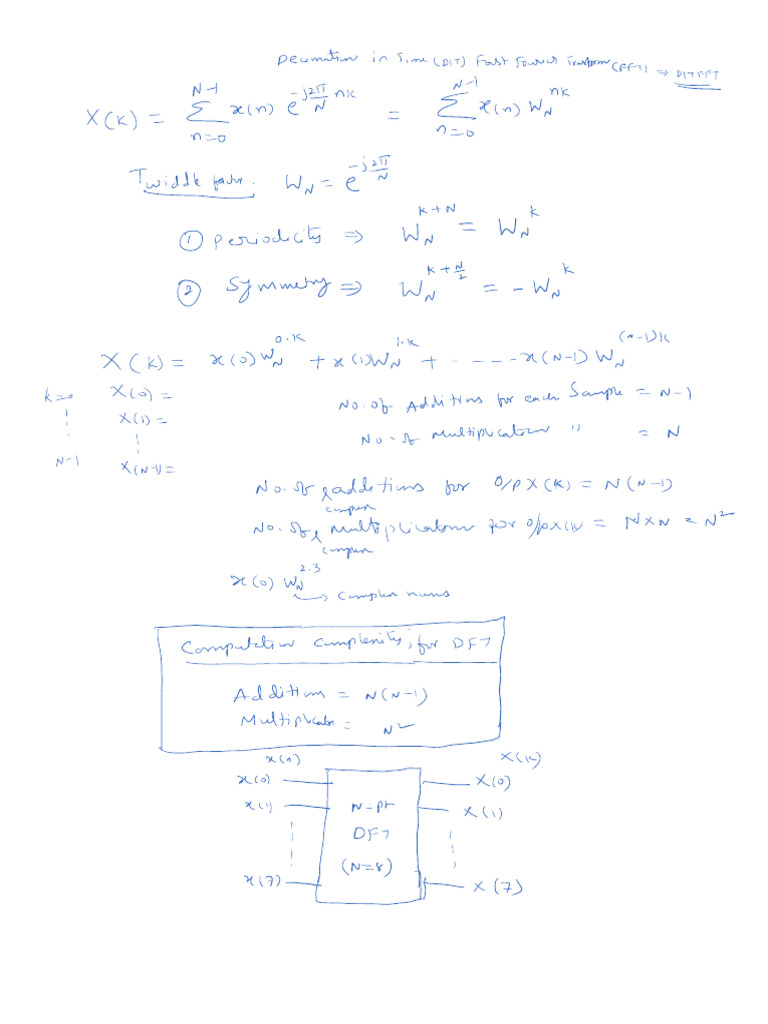 Decimation in Time (DIT) Fast Fourier Transform (FFT) ⇒ DITFFT
X(k) = Σ_{n=0}^{N-1} x(n) e^{-j2π/N nk} = Σ_{n=0}^{N-1} x(n) W_N^{nk}
Twiddle factor. W_N = e^{-j2π/N}
① Periodicity ⇒ W_N^{k+N} = W_N^k
② Symmetry ⇒ W_N^{k+N/2} = -W_N^k
X(k) = x(0)W_N^{0.k} + x(1)W_N^{1.k} + ----- x(N-1) W_N^{(n-1)k}
k=0 X(0) =
X(1) =
N-1 X(N-1) =
No. of Additions for each Sample = N-1
No. of Multiplication " = N
No. of additions for O/P X(k) = N(N-1)
complex
No. of Multiplications for O/P X(k) = N×N = N²
complex
x(0) W_N^{2.3}
→ complex nums
Computation complexity for DFT
Addition = N(N-1)
Multiplication = N²
x(n) X(k)
x(0) X(0)
x(1) N-pt X(1)
DFT
(N=8)
x(7) X(7)